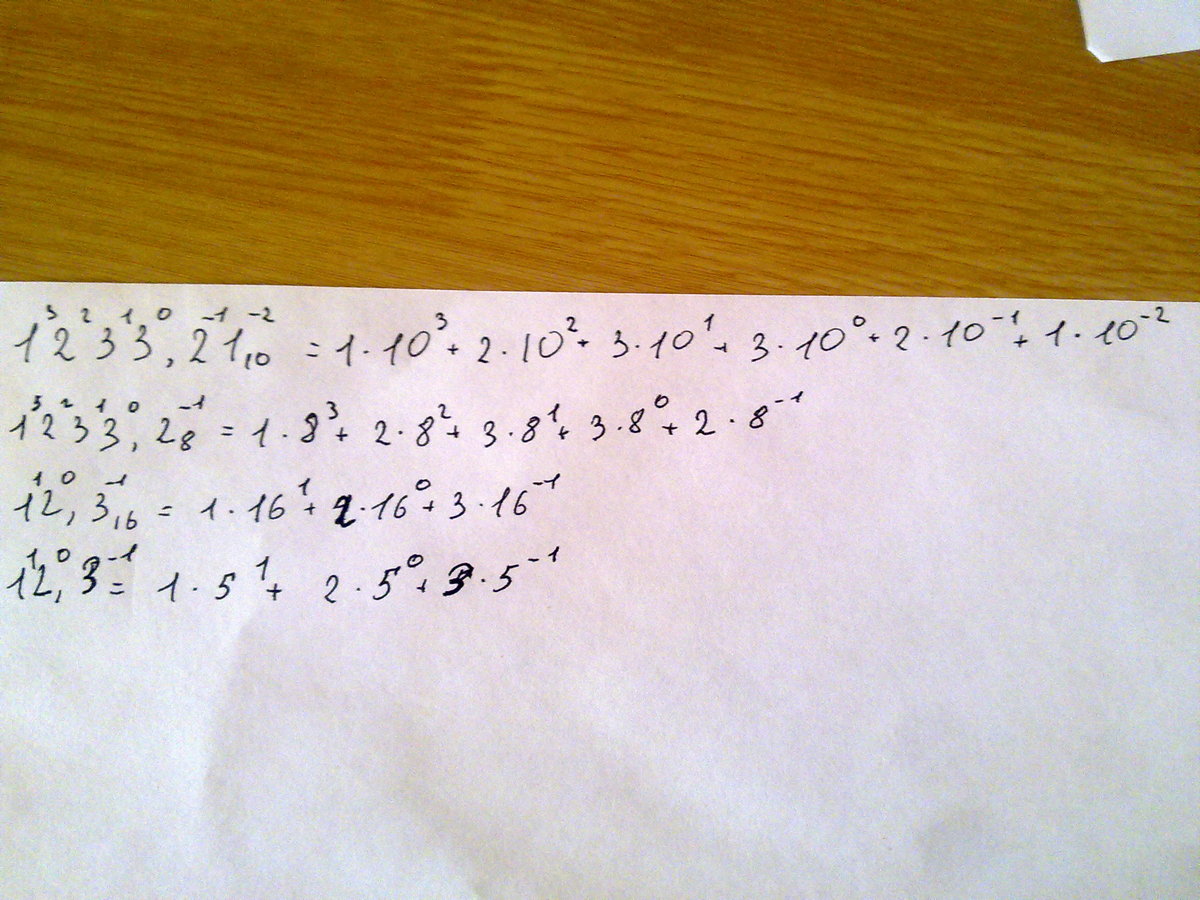 1³2²3¹3⁰,2⁻¹1⁻²₁₀ = 1·10³ + 2·10² + 3·10¹ + 3·10⁰ + 2·10⁻¹ + 1·10⁻²
1³2²3¹3⁰,2⁻¹₈ = 1·8³ + 2·8² + 3·8¹ + 3·8⁰ + 2·8⁻¹
1¹2⁰,3⁻¹₁₆ = 1·16¹ + 2·16⁰ + 3·16⁻¹
1¹2⁰,3⁻¹ = 1·5¹ + 2·5⁰ + 3·5⁻¹